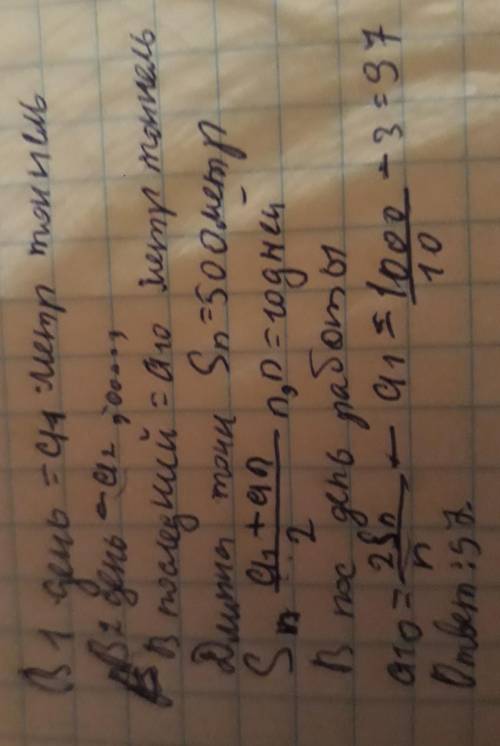 В 1 день = a1 метр тоннель
В 2 день – a2, ......,
В последний = a10 метр тоннель
Длинна тонн Sn = 500 метр
Sn = (a1 + an)/2 n, n = 10 дней
В пос день работы
a10 = 2Sn/n – a1 = 1000/10 – 3 = 97
Ответ: 97.